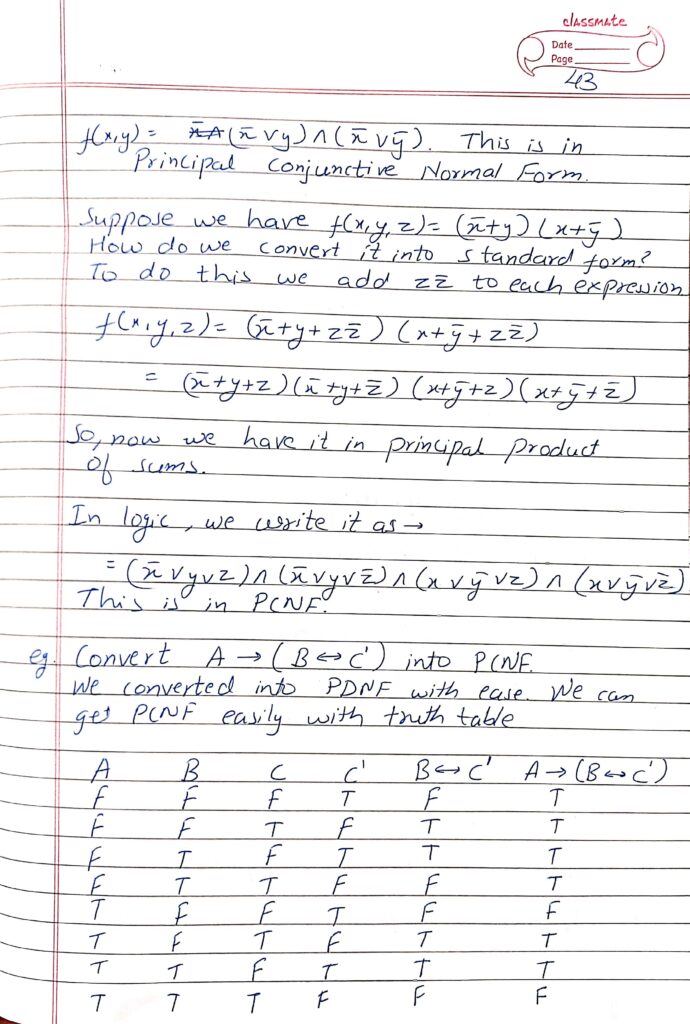 classmate
Date
Page
43
f(x,y) = (x̄ ∨ y) ∧ (x̄ ∨ ȳ). This is in
Principal Conjunctive Normal Form.
Suppose we have f(x,y,z) = (x̄+y)(x+ȳ)
How do we convert it into standard form?
To do this we add zz̄ to each expression
f(x,y,z) = (x̄+y+zz̄)(x+ȳ+zz̄)
= (x̄+y+z)(x̄+y+z̄)(x+ȳ+z)(x+ȳ+z̄)
So, now we have it in principal product
of sums.
In logic, we write it as →
= (x̄∨y∨z)∧(x̄∨y∨z̄)∧(x∨ȳ∨z)∧(x∨ȳ∨z̄)
This is in PCNF.
eg. Convert A → (B ↔ C') into PCNF.
We converted into PDNF with ease. We can
get PCNF easily with truth table
A B C C' B↔C' A→(B↔C')
F F F T F T
F F T F T T
F T F T T T
F T T F F T
T F F T F F
T F T F T T
T T F T T T
T T T F F F